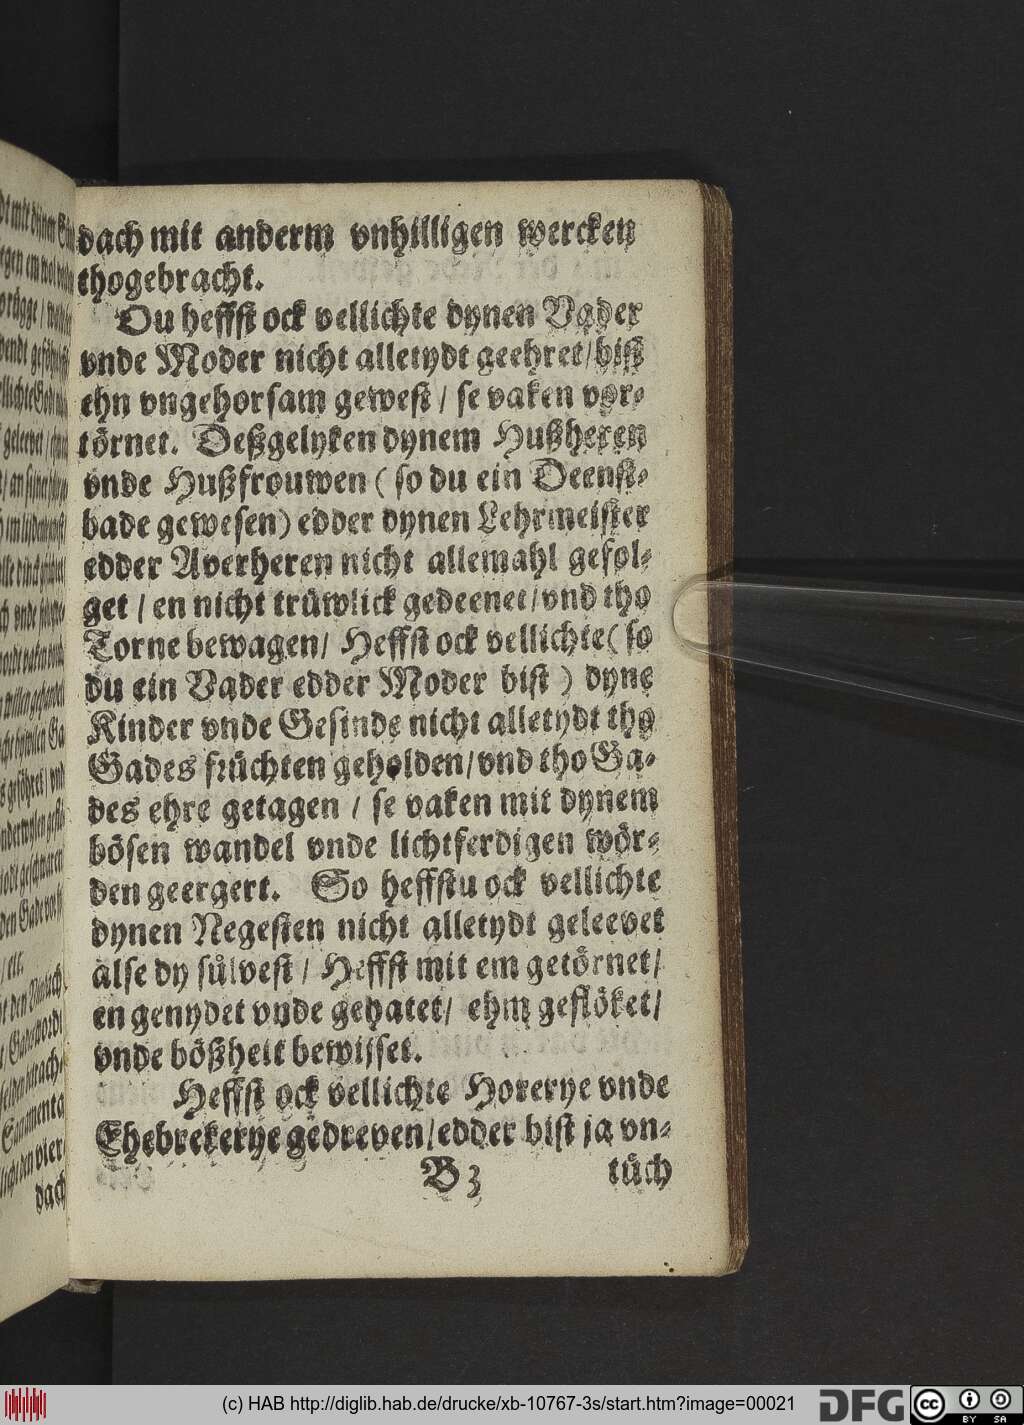 dach mit anderm vnhilligen wercken
thogebracht.
Du heffst ock vellichte dynen Vader
vnde Moder nicht alletydt geehret/bist
ehn vngehorsam gewest / se vaken vor-
törnet. Deßgelyken dynem Hußheren
vnde Hußfrouwen (so du ein Deenst-
bade gewesen) edder dynen Lehrmeister
edder Averheren nicht allemahl gefol-
get / en nicht trüwlick gedeenet/vnd tho
Torne bewagen/ Heffst ock vellichte (so
du ein Vader edder Moder bist) dyne
Kinder vnde Gesinde nicht alletydt tho
Gades früchten geholden/vnd tho Ga-
des ehre getagen / se vaken mit dynem
bösen wandel vnde lichtferdigen wör-
den geergert. So heffstu ock vellichte
dynen Negesten nicht alletydt geleevet
alse dy sülvest / Heffst mit em getörnet/
en genydet vnde gehatet/ ehm geflöket/
vnde bößheit bewisset.
Heffst ock vellichte Horerye vnde
Ehebrekerye gedreven/edder bist ja vn-
B 3 tüch
dach
(c) HAB http://diglib.hab.de/drucke/xb-10767-3s/start.htm?image=00021
DFG
cc BY SA